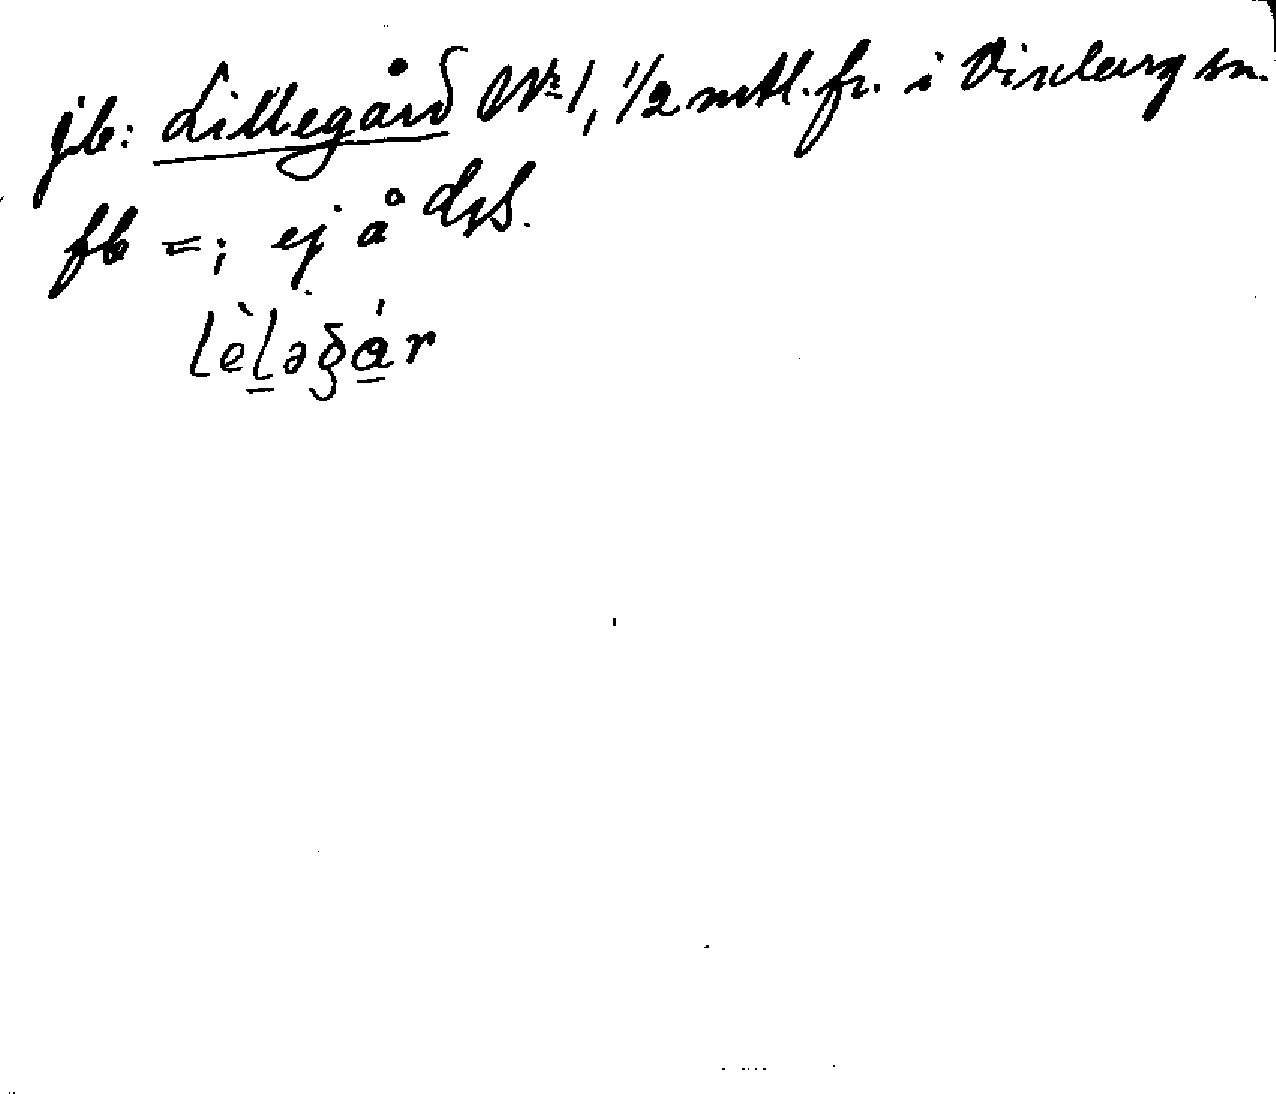 jb: Lillegård Nr 1, 1/2 mtl. fr. i Vinberg sn.
fb =; ej å dsS.
lèləgár